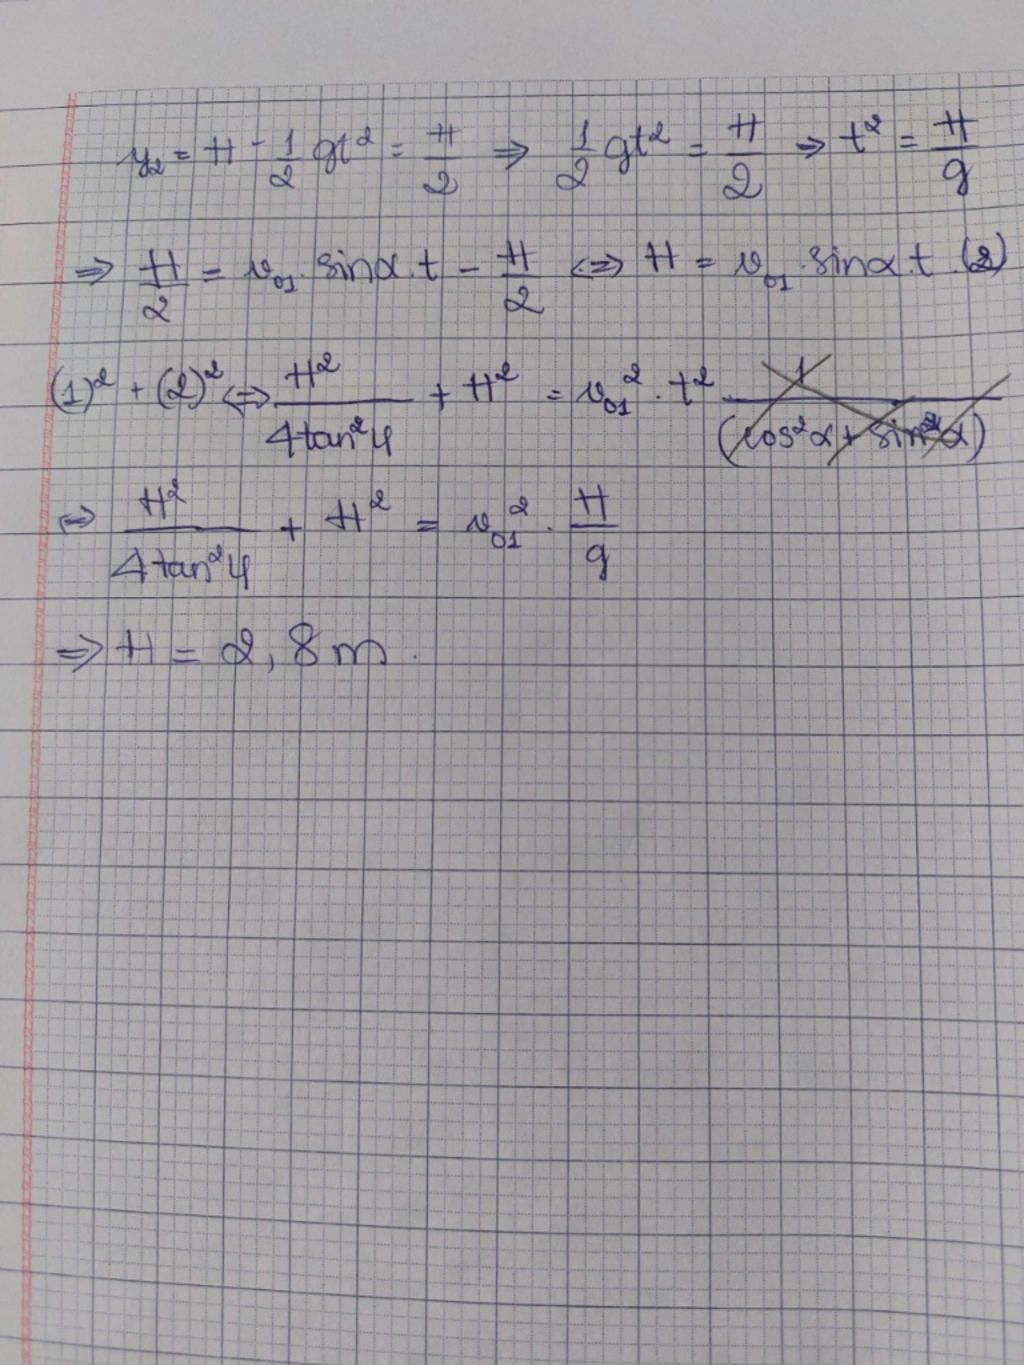 y₂ = H - 1/2 gt² = H/2 ⇒ 1/2 gt² = H/2 ⇒ t² = H/g
⇒ H/2 = v₀₁. sinα. t - H/2 ⇔ H = v₀₁. sinα. t. (2)
(1)² + (2)² ⇔ H²/4tan²φ + H² = v₀₁² . t² 1/(cos²α + sin²α)
⇔ H²/4tan²φ + H² = v₀₁² . H/g
⇒ H = 2,8m.